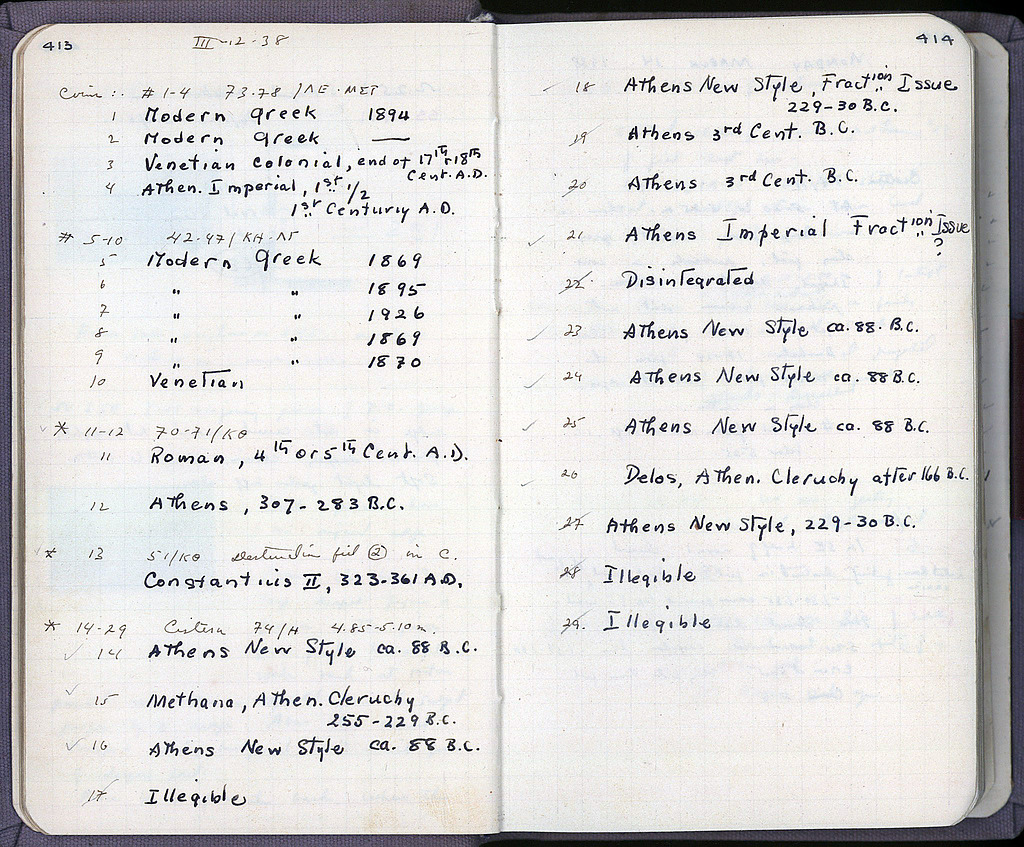 413
III-12-38
Coins: #1-4 73-78/ΛΕ-ΜΣΤ
1 Modern Greek 1894
2 Modern Greek —
3 Venetian Colonial, end of 17th + 18th
Cent. A.D.
4 Athen. Imperial, 1st 1/2
1st Century A.D.
# 5-10 42-47/ΚΗ-ΛΕ
5 Modern Greek 1869
6 " " 1895
7 " " 1926
8 " " 1869
9 " " 1870
10 Venetian
* 11-12 70-71/ΚΘ
11 Roman, 4th or 5th Cent. A.D.
12 Athens, 307-283 B.C.
* 13 51/ΚΘ Destruction fill ② in C.
Constantius II, 323-361 A.D.
* 14-29 Cistern 74/Η 4.85-5.10m.
14 Athens New Style ca. 88 B.C.
15 Methana, Athen. Cleruchy
255-229 B.C.
16 Athens New Style ca. 88 B.C.
17 Illegible
414
18 Athens New Style, Fraction Issue
229-30 B.C.
19 Athens 3rd Cent. B.C.
20 Athens 3rd Cent. B.C.
21 Athens Imperial Fraction Issue
?
22 Disintegrated
23 Athens New Style ca. 88. B.C.
24 Athens New Style ca. 88 B.C.
25 Athens New Style ca. 88 B.C.
26 Delos, Athen. Cleruchy after 166 B.C.
27 Athens New Style, 229-30 B.C.
28 Illegible
29. Illegible